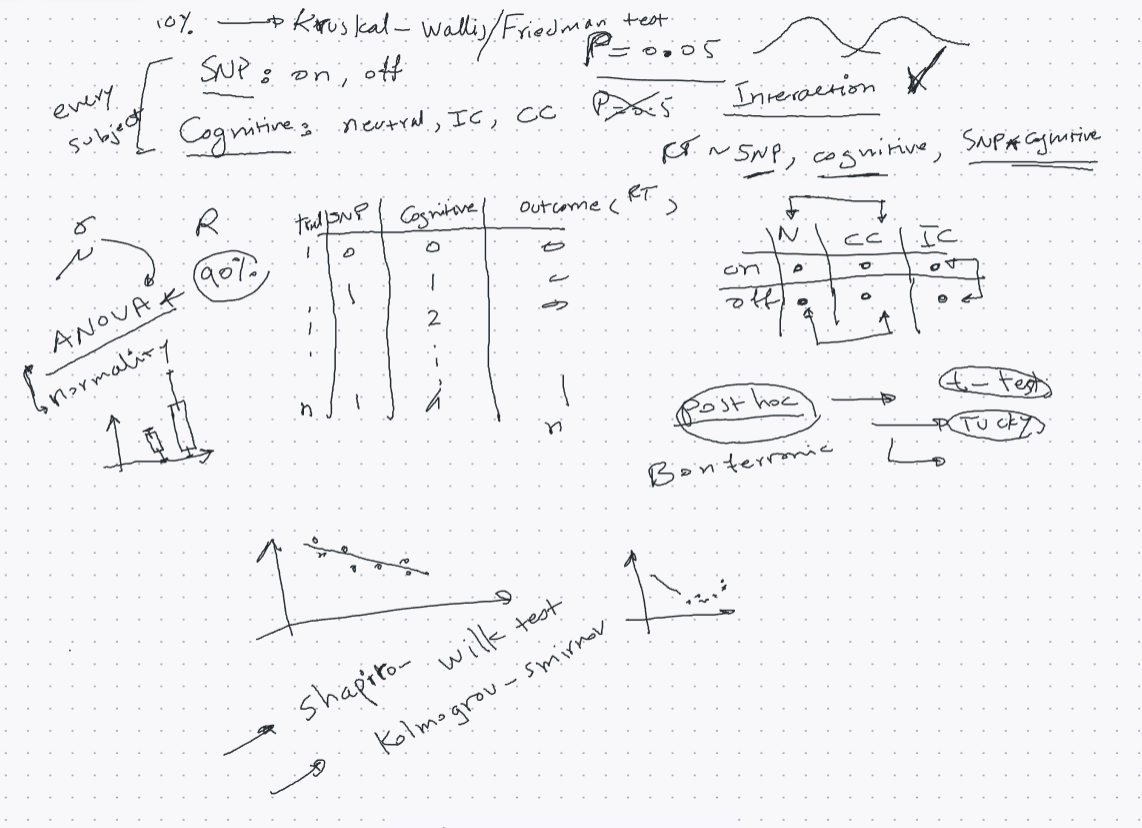 10% → Kruskal-Wallis/Friedman test
P=0.05
every subject
SNP: on, off
Cognitive: neutral, IC, CC
Interaction
RT ~ SNP, cognitive, SNP*Cognitive
R
90%
ANOVA *
normality
trial | SNP | Cognitive | outcome (RT)
1 | 0 | 0 | 0
1 | 1
2
n | 1
n
N | CC | IC
on | o | o | o
off | o | o | o
Post hoc → t-test
Tucky
Bonferronic
Shapiro-Wilk test
Kolmogrov-Smirnov